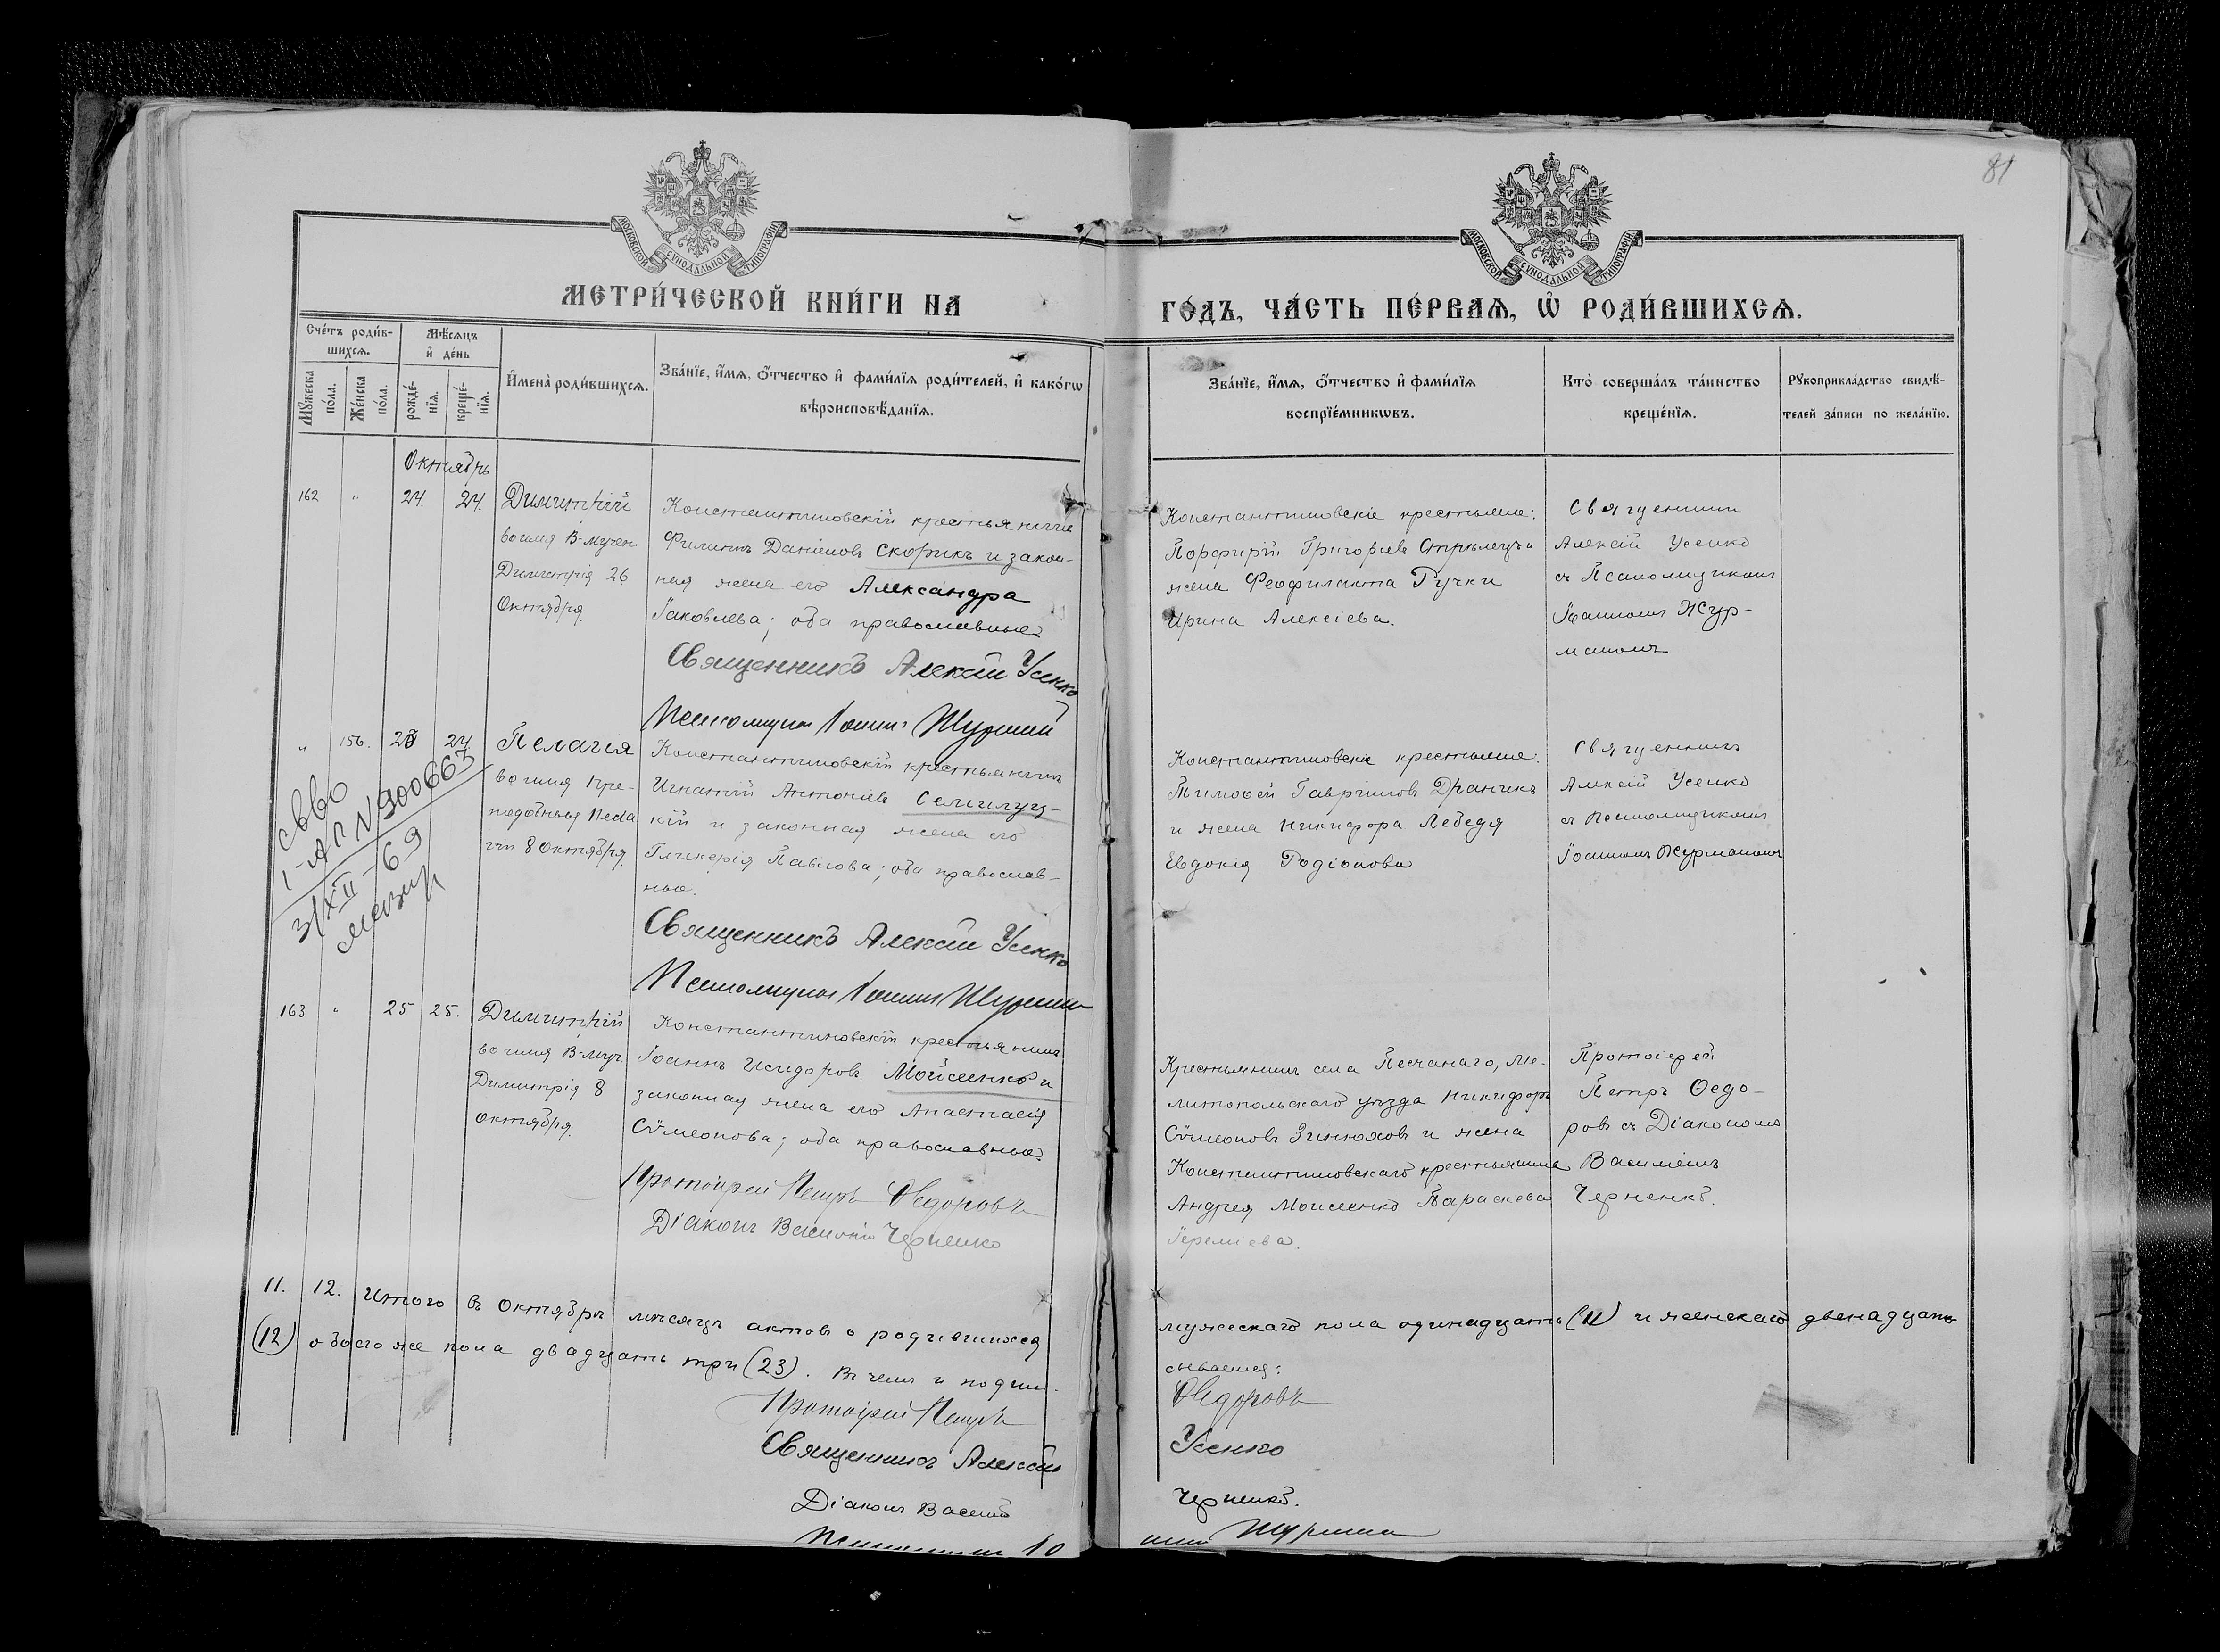 81
МОСКОВСКОЙ СѴНОДАЛЬНОЙ ТИПОГРАФІИ
МОСКОВСКОЙ СѴНОДАЛЬНОЙ ТИПОГРАФІИ
МЕТРИ́ЧЕСКОЙ КНИ́ГИ НА ГО́ДЪ, ЧА́СТЬ ПЕ́РВАѦ, Ѡ҆ РОДИ́ВШИХСѦ.
Сче́тъ роди́в-
шихсѧ.
Мꙋ́жеска по́ла.
Же́нска по́ла.
Мѣ́сѧцъ
и҆ де́нь
рожде́-
нїѧ.
креще́-
нїѧ.
И҆мена̀ роди́вшихсѧ.
Зва́нїе, и҆́мѧ, ѻ҆́тчество и҆ фами́лїѧ роди́телей, и҆ како́гѡ
вѣроисповѣ́данїѧ.
Зва́нїе, и҆́мѧ, ѻ҆́тчество и҆ фами́лїѧ
воспрїе́мникѡвъ.
Кто̀ соверша́лъ та́инство
креще́нїѧ.
Рꙋкоприкла́дство свидѣ́-
телей за́писи по жела́нїю.
Октябрь
162 " 24. 24.
Димитрій
во имя В-мучен.
Димитрія 26
Октября.
Константиновскій крестьянинъ
Филиппъ Даніиловъ Скорикъ и закон-
ная жена его Александра
Іаковлева; оба православные
Священникъ Алексій Усенко
Псаломщикъ Іоаннъ Журманъ
Константиновскіе крестьяне:
Порфирій Григоріевъ Стрѣлецъ и
жена Феофилакта Ручки
Ирина Алексіева.
Священникъ
Алексій Усенко
съ Псаломщикомъ
Іоанномъ Жур-
маномъ
" 156. 23 24.
Пелагія
во имя Пре-
подобныя Пела
гіи 8 Октября.
Константиновскій крестьянинъ
Игнатій Антоніевъ Семилуц-
кій и законная жена его
Гликерія Павлова; оба православ-
ные.
Священникъ Алексій Усенко
Псаломщикъ Іоаннъ Журманъ
Константиновскіе крестьяне:
Тимофей Гавріиловъ Дранчикъ
и жена Никифора Лебедя
Евдокія Родіонова
Священникъ
Алексій Усенко
съ Псаломщикомъ
Іоанномъ Журманомъ
1-АП №300663
3/XII-69
163 " 25 25.
Димитрій
во имя В-муч.
Димитрія 8
октября.
Константиновскій крестьянинъ
Іоаннъ Исидоровъ Мойсеенко и
законная жена его Анастасія
Сѵмеонова; оба православные.
Протоіерей Петръ Ѳедоровъ
Діаконъ Василій Черненко
Крестьянинъ села Песчанаго, Ме-
литопольскаго уѣзда Никифоръ
Сѵмеоновъ Зинюховъ и жена
Константиновскаго крестьянина
Андрея Моисеенко Параскева
Іереміева.
Протоіерей
Петръ Ѳедо-
ровъ съ Діакономъ
Василіемъ
Черненко.
11. 12. Итого въ Октябрѣ мѣсяцѣ актовъ о родившихся мужескаго пола одинадцать (11) и женскаго двенадцать
(12) обоего же пола двадцать три (23). Въ чемъ и подпи-
сываемся:
Протоіерей Петръ Ѳедоровъ
Священникъ Алексій Усенко
Діаконъ Василій Черненко.